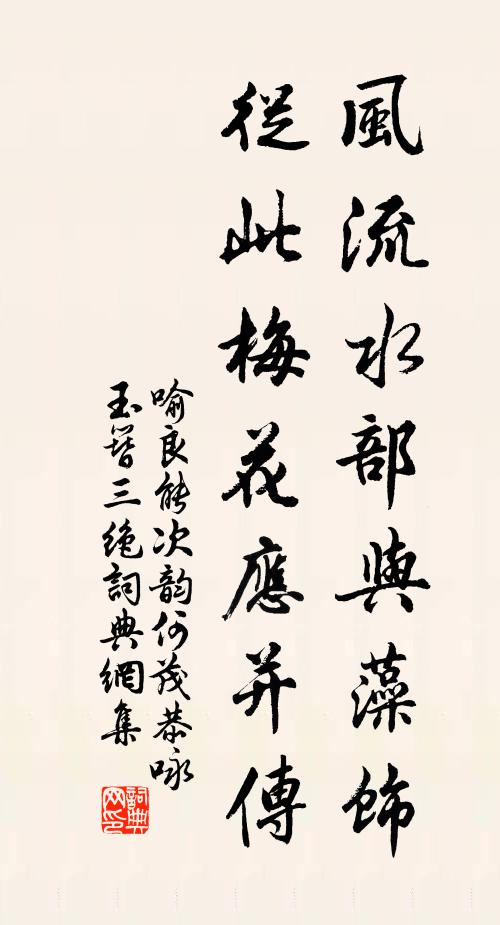 風流水部與藻飾
從此梅花應并傳
喻良能次韵何茂恭咏
玉簪三絶詞典網集
詞典网印